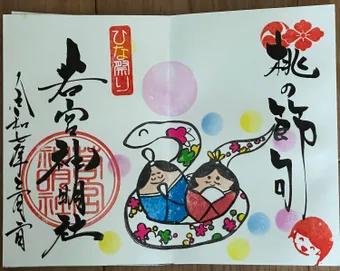 桃の節句
ひな祭り
若宮神明社
令和七年三月